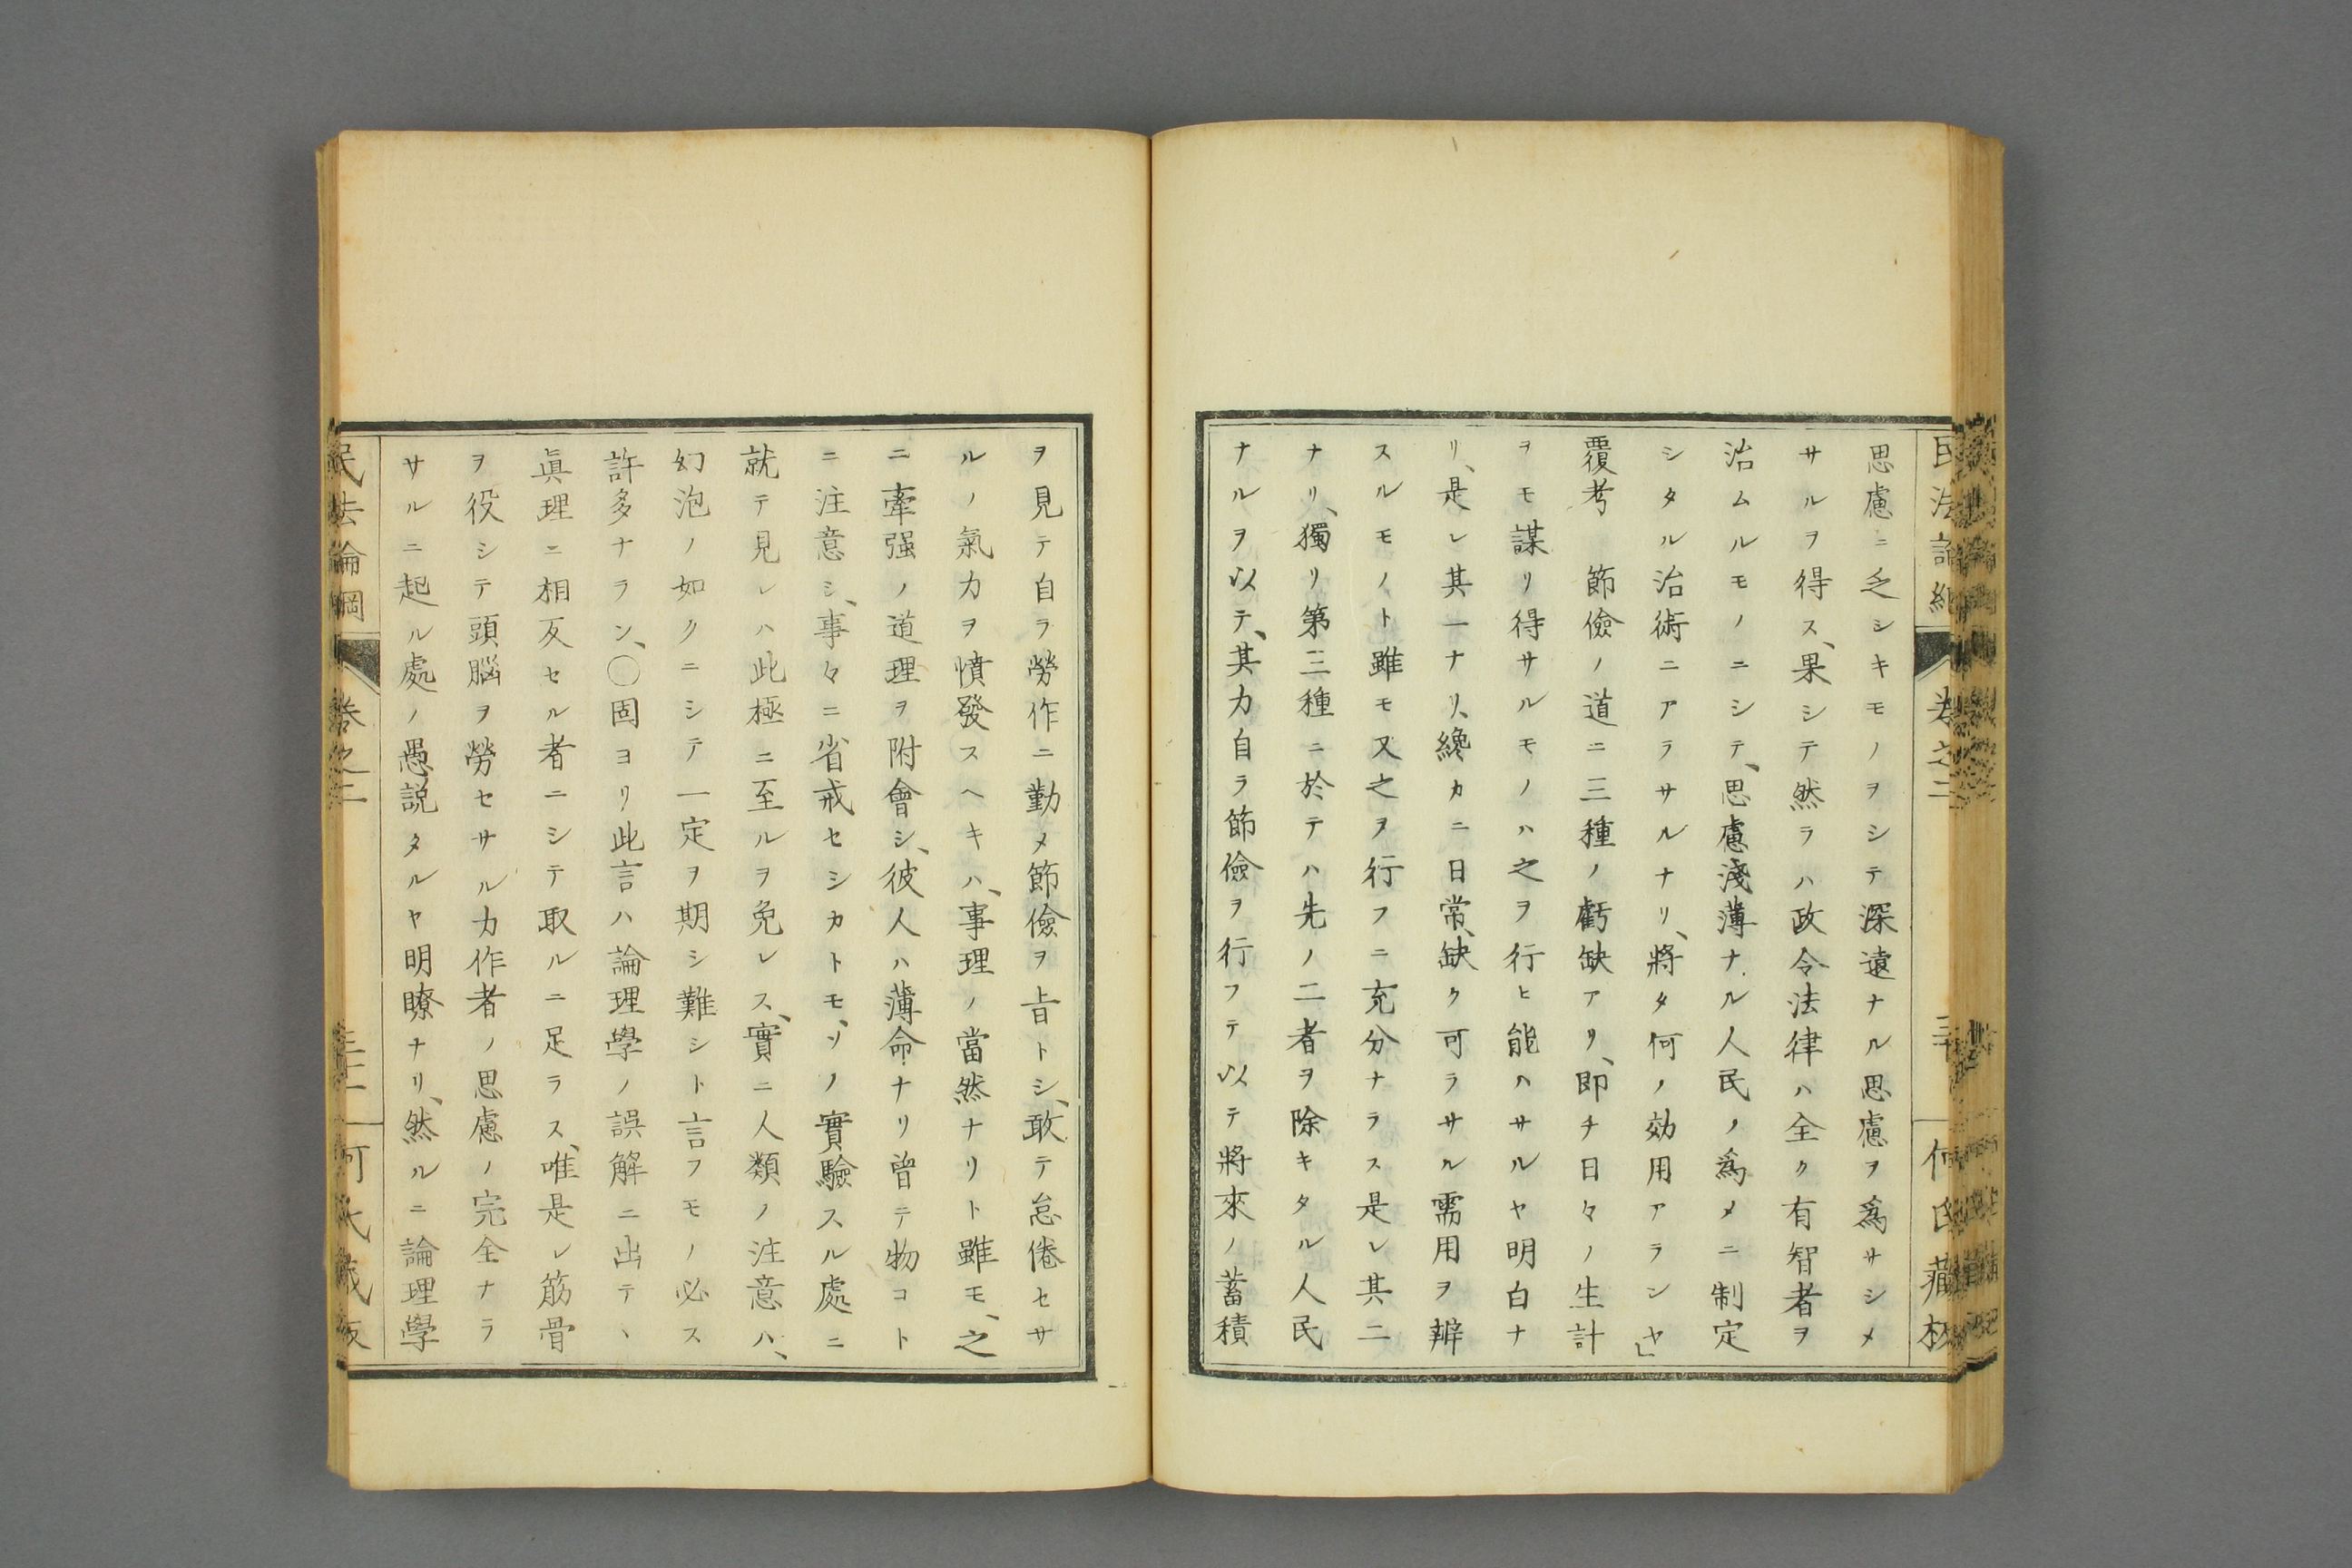 思慮ニ乏シキモノヲシテ深遠ナル思慮ヲ爲サシメ
サルヲ得ス、果シテ然ラハ政令法律ハ全ク有智者ヲ
治ムルモノニシテ、思慮淺薄ナル人民ノ爲メニ制定
シタル治術ニアラサルナリ、將タ何ノ効用アランヤ」
覆考 節儉ノ道ニ三種ノ虧缺アリ、即チ日々ノ生計
ヲモ謀リ得サルモノハ之ヲ行ヒ能ハサルヤ明白ナ
リ、是レ其一ナリ、纔カニ日常、缺ク可ラサル需用ヲ辨
スルモノト雖モ又之ヲ行フニ充分ナラス是レ其二
ナリ、獨リ第三種ニ於テハ先ノ二者ヲ除キタル人民
ナルヲ以テ、其力自ラ節儉ヲ行フテ以テ將來ノ蓄積
ヲ見テ自ラ勞作ニ勤メ節儉ヲ㫖トシ、敢テ怠倦セサ
ルノ氣力ヲ憤發スヘキハ、事理ノ當然ナリト雖モ、之
ニ牽强ノ道理ヲ附會シ、彼人ハ薄命ナリ曾テ物コト
ニ注意シ、事々ニ省戒セシカトモ、ソノ實驗スル處ニ
就テ見レハ此極ニ至ルヲ免レス、實ニ人類ノ注意ハ、
幻泡ノ如クニシテ一定ヲ期シ難シト言フモノ必ス
許多ナラン、〇固ヨリ此言ハ論理學ノ誤解ニ出テ、
眞理ニ相反セル者ニシテ取ルニ足ラス、唯是レ筋骨
ヲ役シテ頭腦ヲ勞セサル力作者ノ思慮ノ完全ナラ
サルニ起ル處ノ愚説タルヤ明瞭ナリ、然ルニ論理學
民法論綱 卷之二 何氏藏板